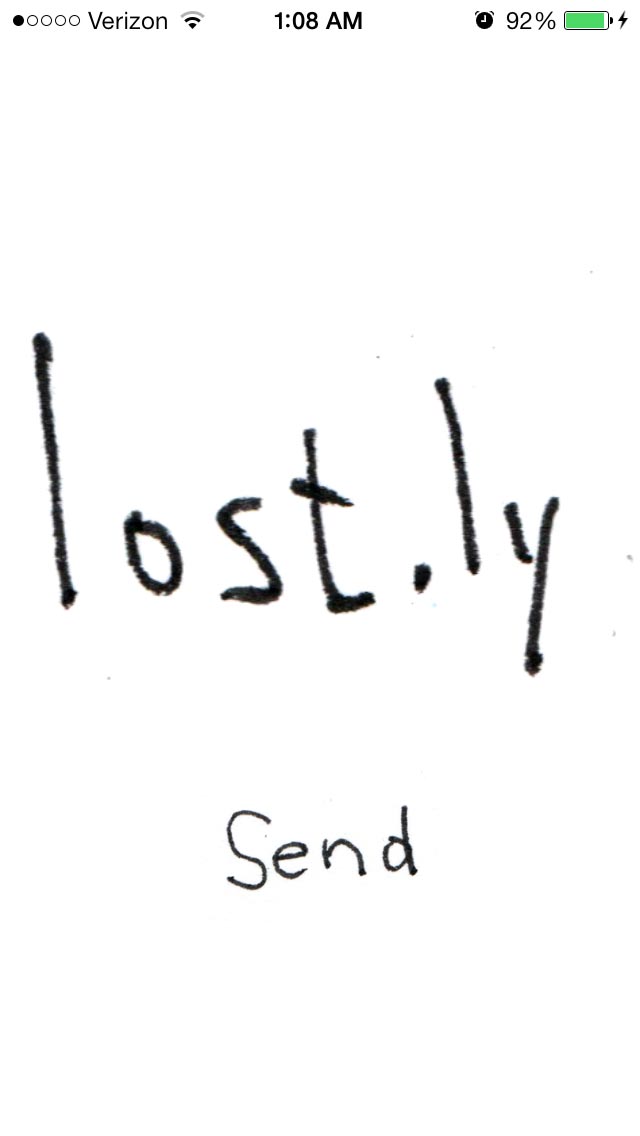 Verizon 1:08 AM 92%
lost.ly
Send